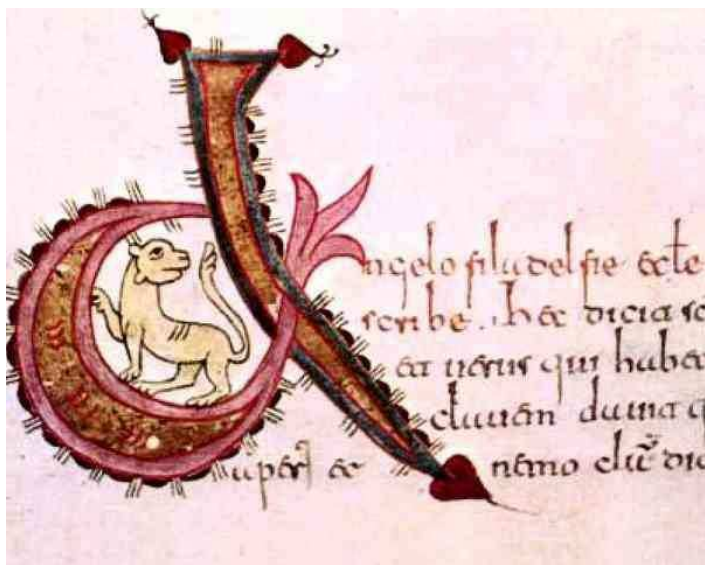 Angelo filadelfie ecle
scribe. hec dicit sc
et uerus qui habe
clauem dauid q
aperit et nemo